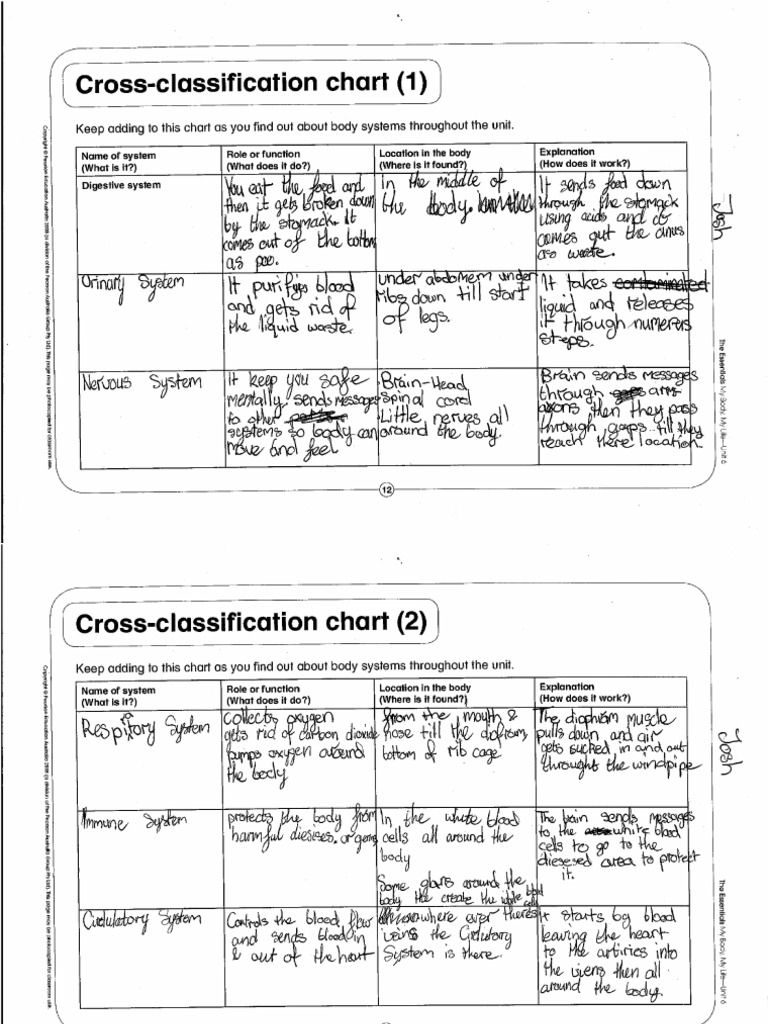 Cross-classification chart (1)
Keep adding to this chart as you find out about body systems throughout the unit.
Name of system
(What is it?)
Role or function
(What does it do?)
Location in the body
(Where is it found?)
Explanation
(How does it work?)
Digestive system
You eat the food and
then it gets broken down
by the stomack. It
comes out of the bottom
as poo.
in the middle of
the body.
It sends food down
through the stomack
using acids and
comes out the anus
as waste.
Urinary System
It purifys blood
and gets rid of
the liquid waste.
under abdomem under
ribs down till start
of legs.
It takes contaminated
liquid and releases
it through numerus
steps.
Nervous System
It keep you safe
mentally, sends messages
to other
systems so body can
move and feel
Brain-Head
Spinal cord
Little nerves all
around the body.
Brain sends messages
through
axons, then they pass
through gaps till they
reach there location.
12
Josh
Copyright © Pearson Education Australia 2008 (a division of the Pearson Australia Group Pty Ltd). This page may be photocopied for classroom use.
The Essentials My Body, My Life—Unit 6
Cross-classification chart (2)
Keep adding to this chart as you find out about body systems throughout the unit.
Name of system
(What is it?)
Role or function
(What does it do?)
Location in the body
(Where is it found?)
Explanation
(How does it work?)
Respitory System
Collects oxygen
gets rid of carbon dioxide
pumps oxygen around
the body
from the mouth &
nose till the diafram,
bottom of rib cage
The diaphram muscle
pulls down and air
gets sucked in and out
throught the windpipe
Immune System
protects the body from
harmful diesises. or germs
In the white blood
cells all around the
body
Some glans around the
body the create the white blood
cells
The brain sends messages
to the white blood
cells to go to the
diesesed area to protect
it.
Circulatory System
Controls the blood flow
and sends blood in
& out of the heart
where ever theres
veins the Cirdutory
System is there.
It starts by blood
leaving the heart
to the artiries into
the viens then all
around the body.
Josh
Copyright © Pearson Education Australia 2008 (a division of the Pearson Australia Group Pty Ltd). This page may be photocopied for classroom use.
The Essentials My Body, My Life—Unit 6